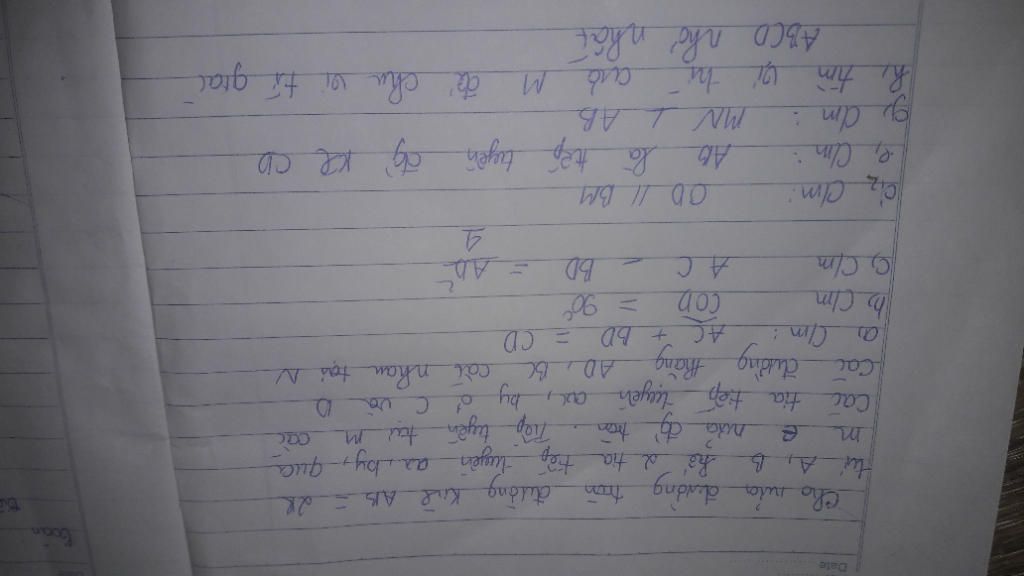 Date
Cho nửa đường tròn đường kính AB = 2R
từ A, B kẻ 2 tia tiếp tuyến ax, by, qua
M e nửa đg tròn. Tiếp tuyến tại M các
các tia tiếp tuyến ax, by ở C và D
các đường thẳng AD, BC cắt nhau tại N
a, C/m: AC + BD = CD
b, C/m COD = 90°
c, C/m AC - BD = AB²/4
d, C/m: OD // BM
e, C/m: AB là tiếp tuyến đg kí CD
g, C/m: MN ⊥ AB
h, tìm vị trí của M để chu vi tứ giác
ABCD nhỏ nhất